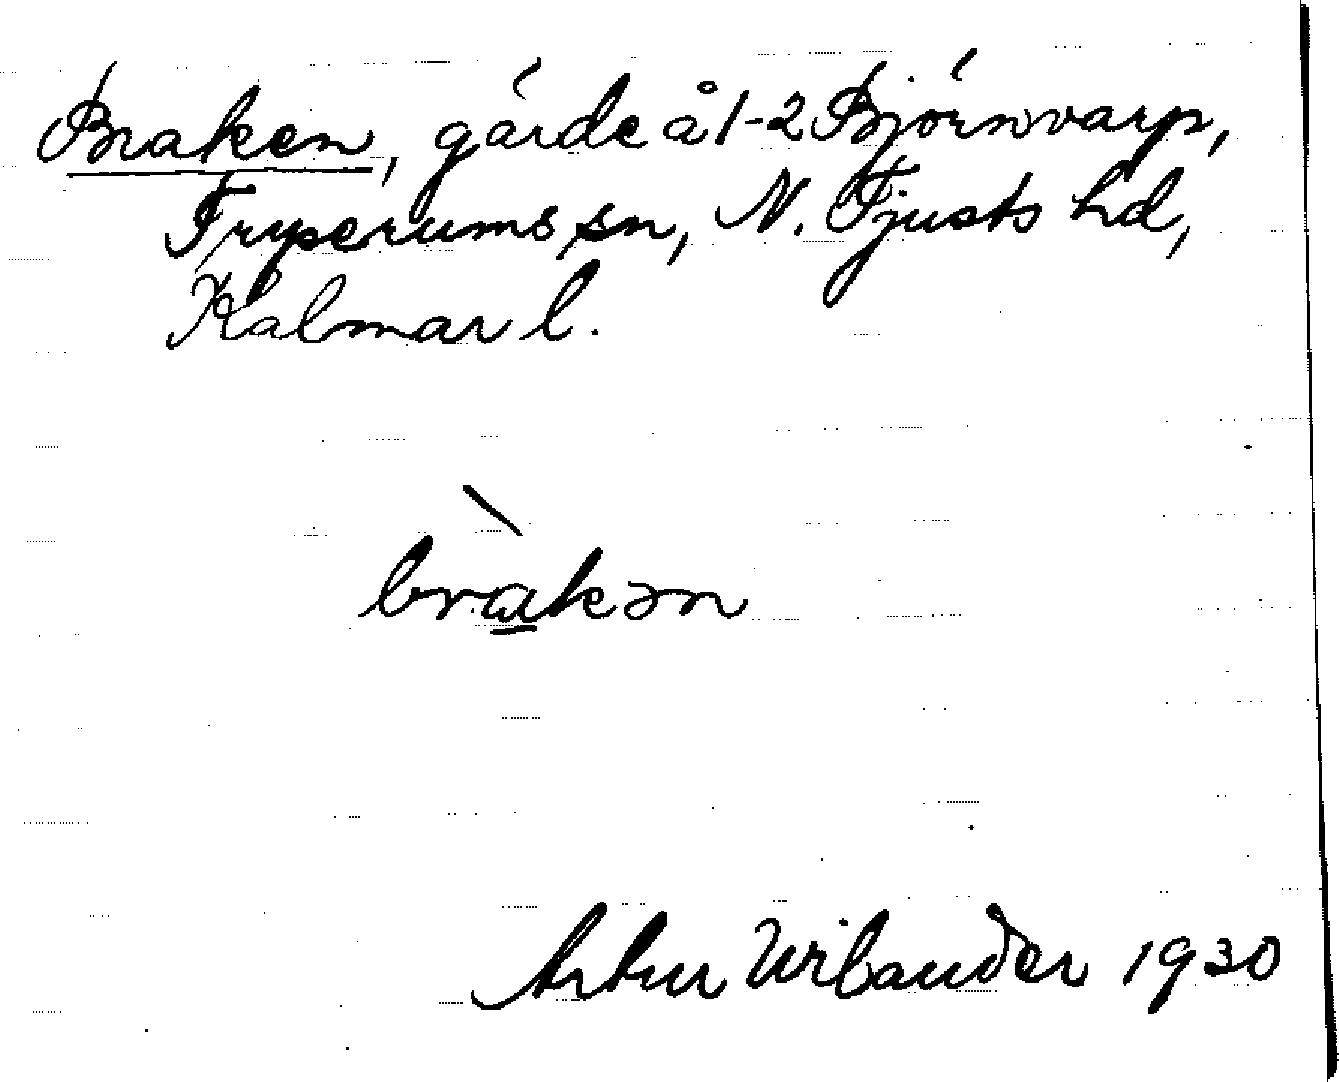 Braken, gärde å 1-2 Björnvarp,
Tryserums sn, N. Tjusts hd,
Kalmar l.
bràkən
Artur Wilander 1930